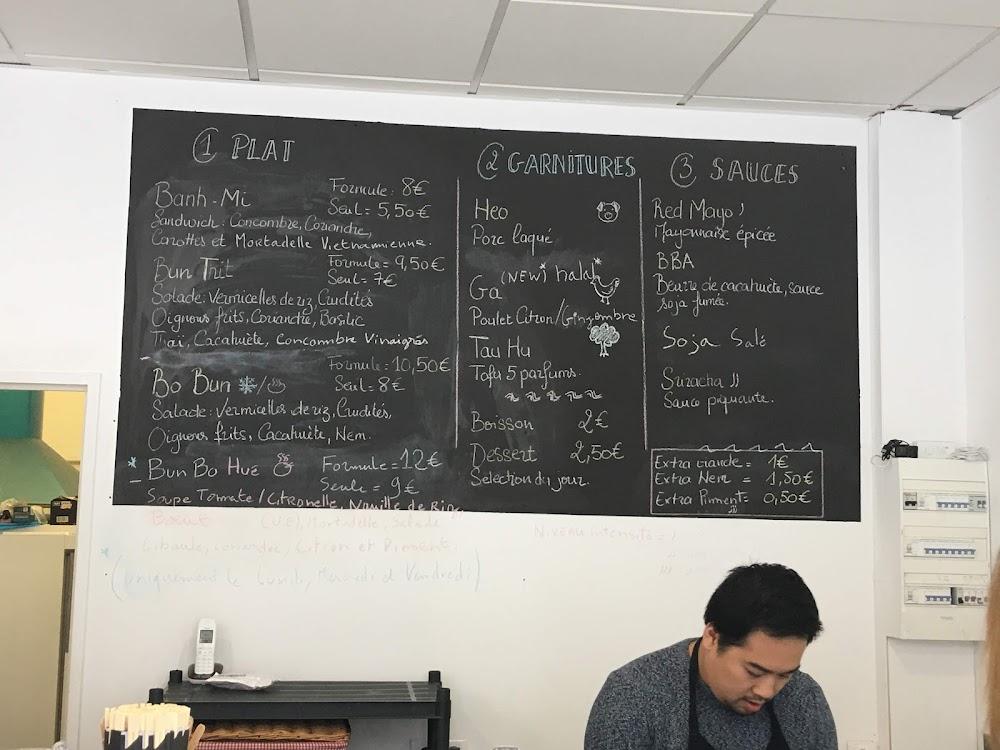 1 PLAT
Banh-Mi
Formule: 8€
Seul = 5,50€
Sandwich: Concombre, Coriandre,
Carottes et Mortadelle Vietnamienne.
Bun Thit
Formule = 9,50€
Seul = 7€
Salade: Vermicelles de riz, Crudités
Oignons frits, Coriandre, Basilic
Thaï, Cacahuète, concombre Vinaigrés
Bo Bun /
Formule: 10,50€
Seul = 8€
Salade: Vermicelles de riz, Crudités,
Oignons frits, Cacahuète, Nem.
* Bun Bo Hue
Formule = 12€
Seule = 9€
Soupe Tomate/Citronelle, Nouille de Riz,
Boeuf (U.E), Mortadelle, Salade
Ciboule, coriandre, Citron et Piment.
* (Uniquement le Lundi, Mercredi et Vendredi)
2 GARNITURES
Heo
Porc laqué
(NEW) halal
Ga
Poulet Citron/Gingembre
Tau Hu
Tofu 5 parfums.
Boisson 2€
Dessert 2,50€
Selection du jour.
3 SAUCES
Red Mayo
Mayonnaise épicée
BBA
Beurre de cacahuète, sauce
soja fumée.
Soja Salé
Sriracha
Sauce piquante.
Extra viande = 1€
Extra Nem = 1,50€
Extra Piment = 0,50€
Niveau intensité =